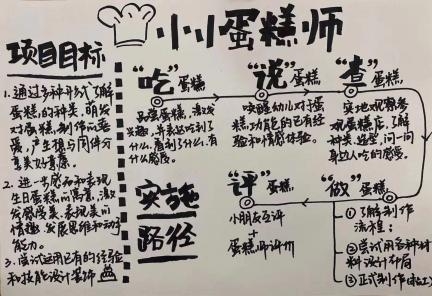 小小蛋糕师
项目目标
1.通过多种形式了解
蛋糕的种类,萌发
对蛋糕制作的忠
爱,产生想与同伴分
享美好意愿。
2.进一步感知和表现
生日蛋糕的寓意,激
发感受美、表现美的
情趣,发展思维和动手
能力。
3.尝试运用已有的经验
和技能设计装饰
“吃”蛋糕
品尝蛋糕,激发
兴趣,并表达吃到了
什么,看到了什么,有
什么感受。
“说”蛋糕
唤醒幼儿对于蛋
糕功能的已有经
验和情感体验。
“查”蛋糕
实地观察参
观蛋糕店,了解
种类、造型,问一问
身边人吃的感受。
实施
路径
“评”蛋糕
小朋友互评
+
蛋糕师评价
“做”蛋糕
①了解制作
流程;
②尝试用各种材
料设计布局
③正式制作